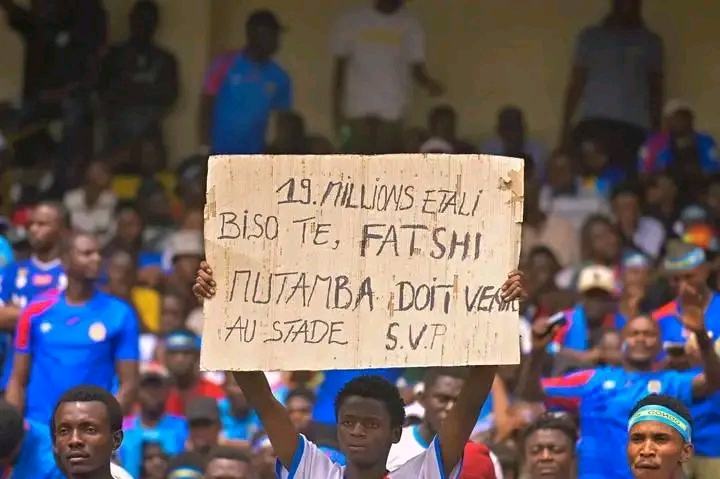 19. MILLIONS ETALI
BISO TE, FATSHI
MUTAMBA DOIT VENIR
AU STADE S.V.P
CONGO